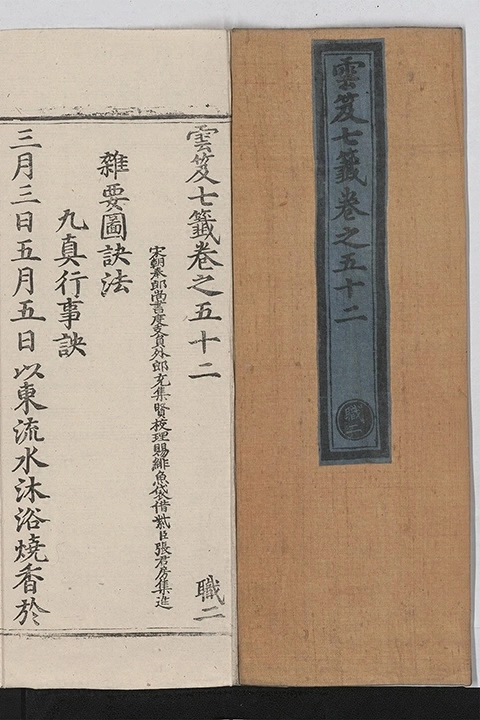 雲笈七籤卷之五十二
職二
雲笈七籤卷之五十二
職二
宋朝奉郎尚書度支員外郎充集賢校理賜緋魚袋借紫臣張君房集進
雜要圖訣法
九真行事訣
三月三日五月五日以東流水沐浴燒香於